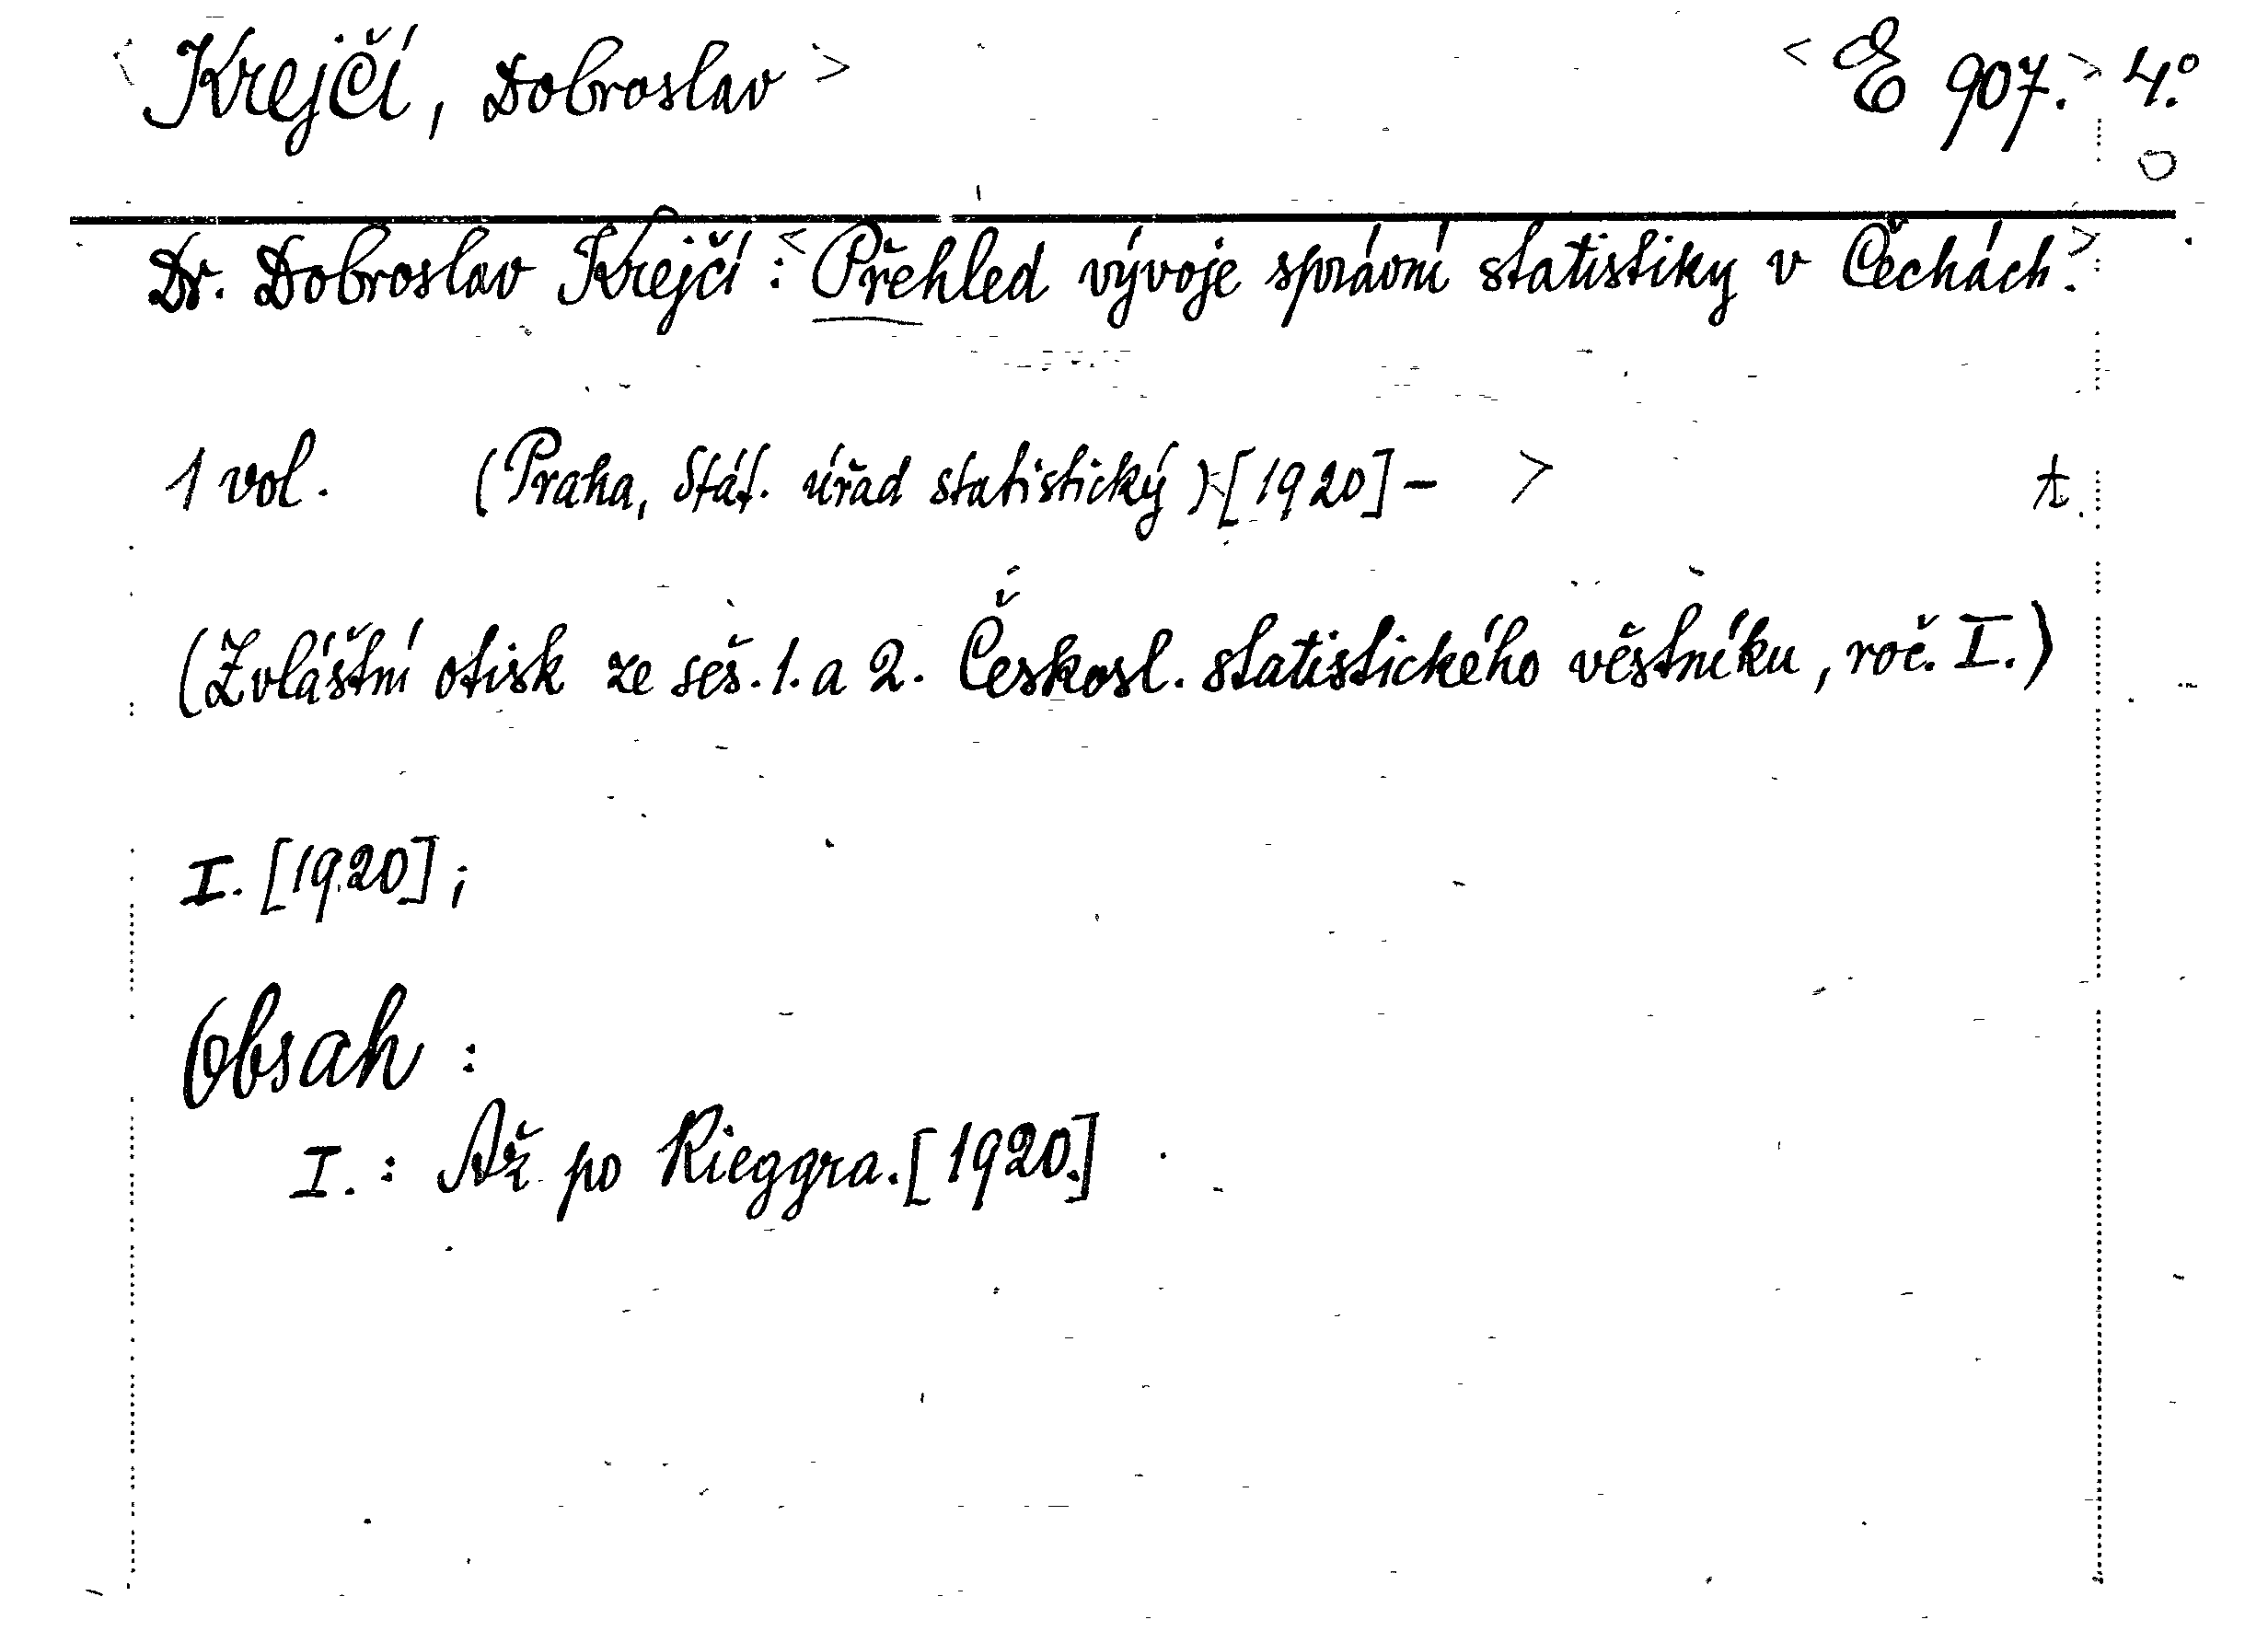 <Krejčí, Dobroslav> <E 907.> 4.°
Dr. Dobroslav Krejčí: <Přehled vývoje správní statistiky v Čechách.>
1 vol. (Praha, Stát. úřad statistický) [1920] - > t.
(Zvláštní otisk ze seš. 1. a 2. Českosl. statistického věstníku, roč. I.)
I. [1920];
Obsah:
I.: Až po Rieggra. [1920.]